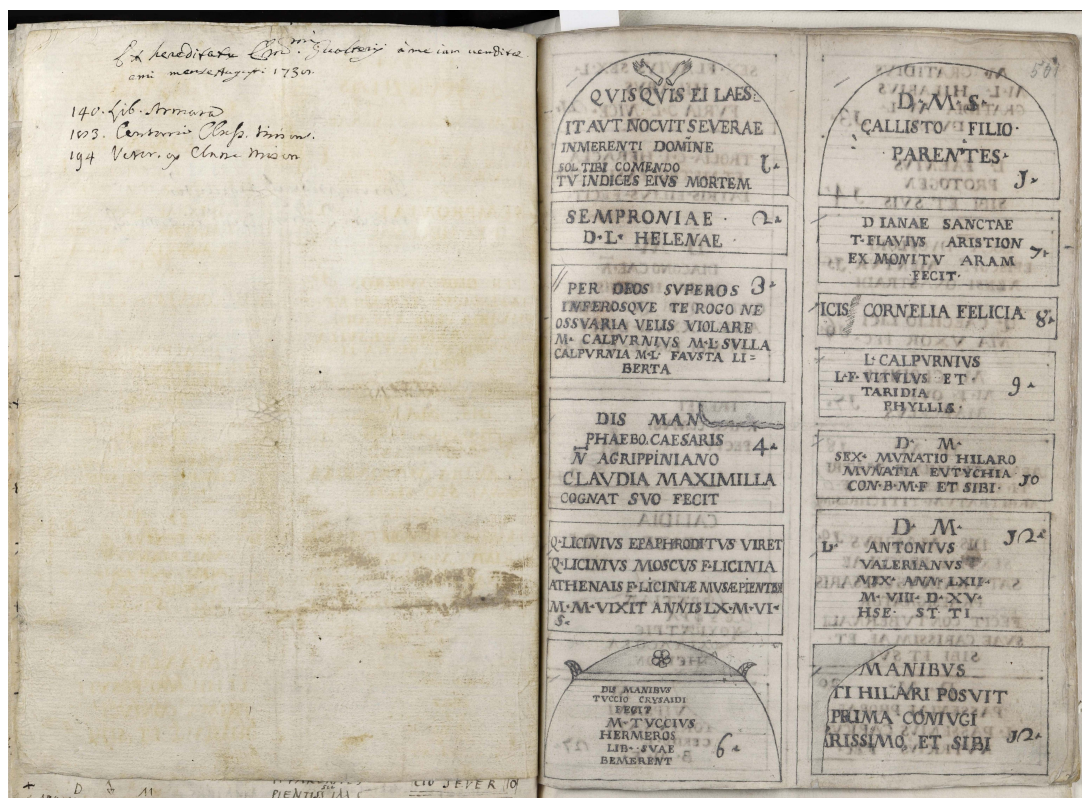 Ex hereditate Gualterij à me iam vendita
anni mense Augusti 1730.
140. Lib. Armara
1813. Centurio Class. Mison.
194 Veter. ex Classe Mison
QVISQVIS EI LAES·
ITAVT NOCVIT SEVERAE
INMERENTI DOMINE
SOL TIBI COMENDO
TV INDICES EIVS MORTEM
1.
SEMPRONIAE · 2.
D·L· HELENAE ·
PER DEOS SVPEROS 3.
INFEROSQVE TE ROGO NE
OSSVARIA VELIS VIOLARE
M· CALPVRNIVS M·L·SVLLA
CALPVRNIA M·L· FAVSTA LI=
BERTA
DIS MAN
PHAEBO.CAESARIS 4.
N AGRIPPINIANO
CLAVDIA MAXIMILLA
COGNAT SVO FECIT
Q·LICINIVS EPAPHRODITVS VIRET
Q·LICINIVS MOSCVS F·LICINIA
ATHENAIS F·LICINIÆ MVSÆ PIENTIB
M·M·VIXIT ANNIS LX·M·VI·
5.
DIS MANIBVS
TVCCIO CRYSAIDI
FECIT
M·TVCCIVS
HERMEROS
LIB· SVAE 6.
BEMERENT
501
D·M·S·
CALLISTO FILIO·
PARENTES·
J.
DIANAE SANCTAE
T·FLAVIVS ARISTION 7.
EX MONITV ARAM
FECIT·
ICIS CORNELIA FELICIA 8.
L·CALPVRNIVS
L·F·VITVLVS ET·
TARIDIA 9.
PHYLLIS·
D· M·
SEX· MVNATIO HILARO
MVNATIA EVTYCHIA
CON·B·M·F ET SIBI· J0
D· M· J2.
L· ANTONIVS
VALERIANVS
MIX· ANN·LXII·
M·VIII·D·XV·
HSE· ST·TI
MANIBVS
TI HILARI POSVIT
PRIMA CONIVGI
ARISSIMO ET SIBI J2.
CIO SEVER